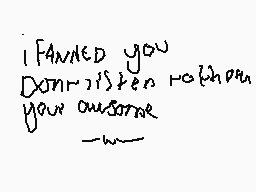 i FANNED you
Don't listen to them
your awsome
—w—